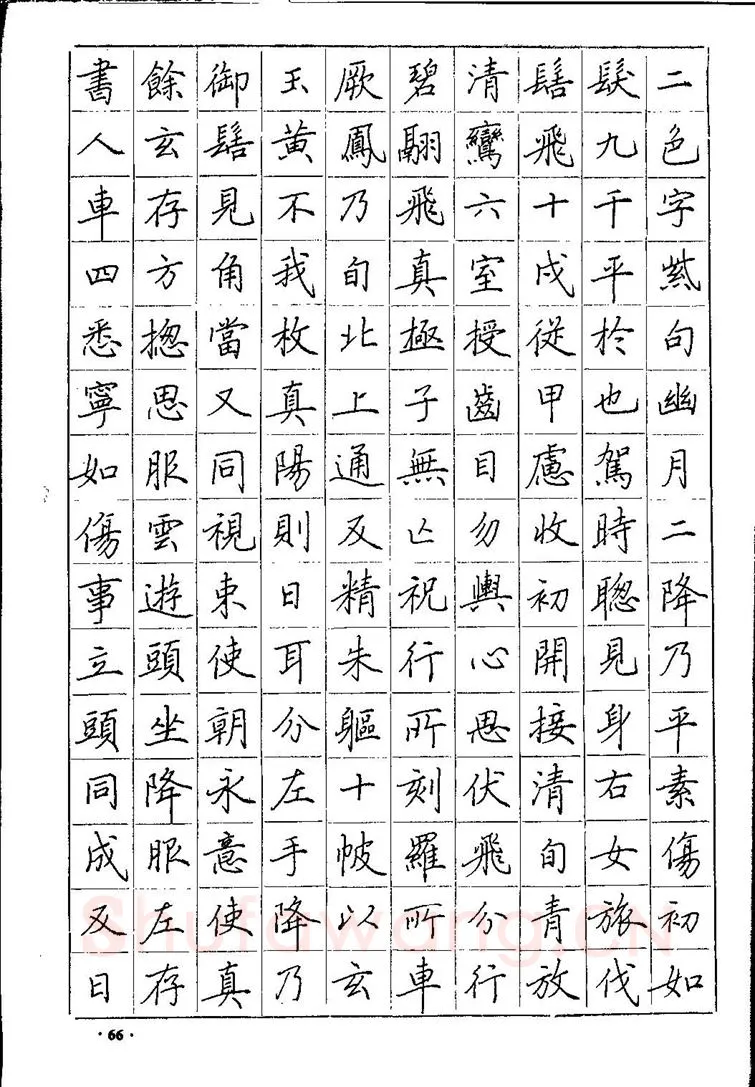 二色字紫句幽月二降乃平素傷初如
髮九千平於也駕時聰見身右女旅伐
髻飛十戌從甲慮收初開接清旬青放
清鸞六室授齒目勿輿心思伏飛分行
碧翮飛真極子無亡祝行所刻羅所車
厥鳳乃旬北上通及精朱軀十帔以玄
玉黃不我枚真陽則日耳分左手降乃
御髻見角當又同視束使朝永意使真
餘玄存方揔思服雲遊頭坐降服左存
書人車四悉寧如傷事立頭同成及日
·66·
Shufawang.CN